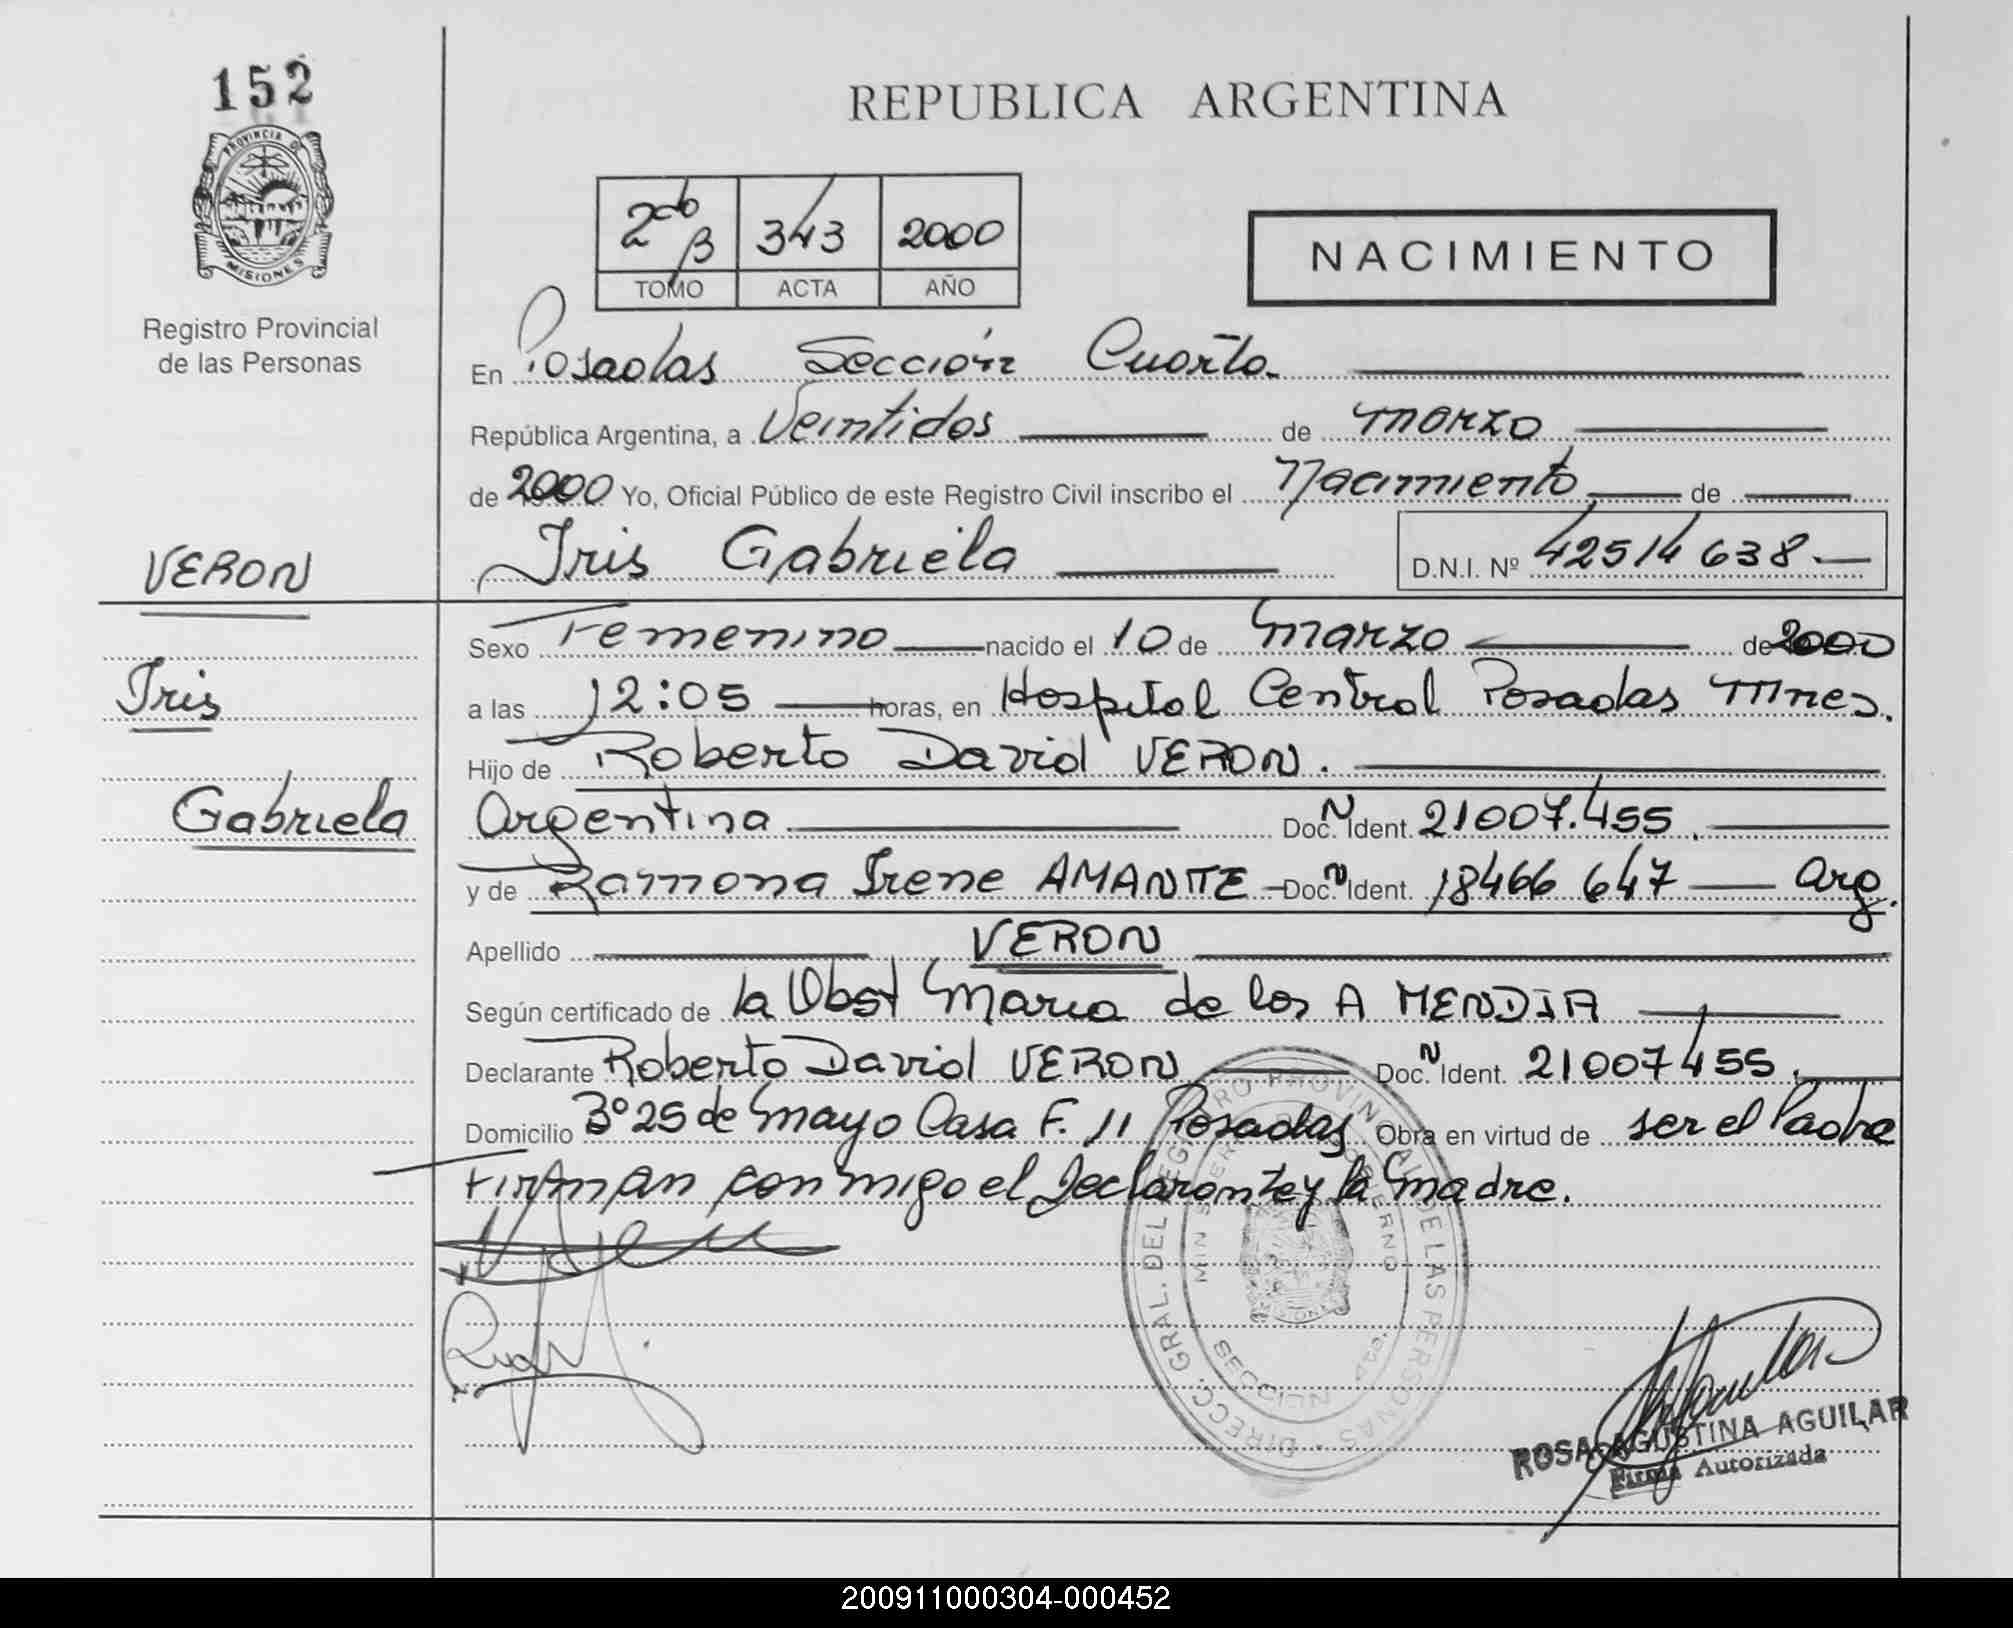 152
PROVINCIA DE
MISIONES
Registro Provincial
de las Personas
REPUBLICA ARGENTINA
2do B 343 2000
TOMO ACTA AÑO
NACIMIENTO
En Posadas Sección Cuarta
República Argentina, a Veintidos de marzo
de 2000 Yo, Oficial Público de este Registro Civil inscribo el Nacimiento de
Iris Gabriela D.N.I. Nº 42514638.
VERON
Iris
Gabriela
Sexo Femenino nacido el 10 de marzo de 2000
a las 12:05 horas, en Hospital Central Posadas Mnes.
Hijo de Roberto David VERON.
Argentina Doc. N Ident. 21007.455.
y de Ramona Irene AMANTE Doc. N Ident. 18466647 Arg.
Apellido VERON
Según certificado de la Obst Maria de los A MENDIA
Declarante Roberto David VERON Doc. N Ident. 21007455.
Domicilio Bº 25 de Mayo Casa F. 11 Posadas Obra en virtud de ser el Padre
Firman conmigo el Declarante y la Madre.
DIRECC. GRAL. DEL REGISTRO PROVINCIAL DE LAS PERSONAS
MINISTERIO DE GOBIERNO
SECCION 4ta.
ROSA AGUSTINA AGUILAR
Firma Autorizada
200911000304-000452